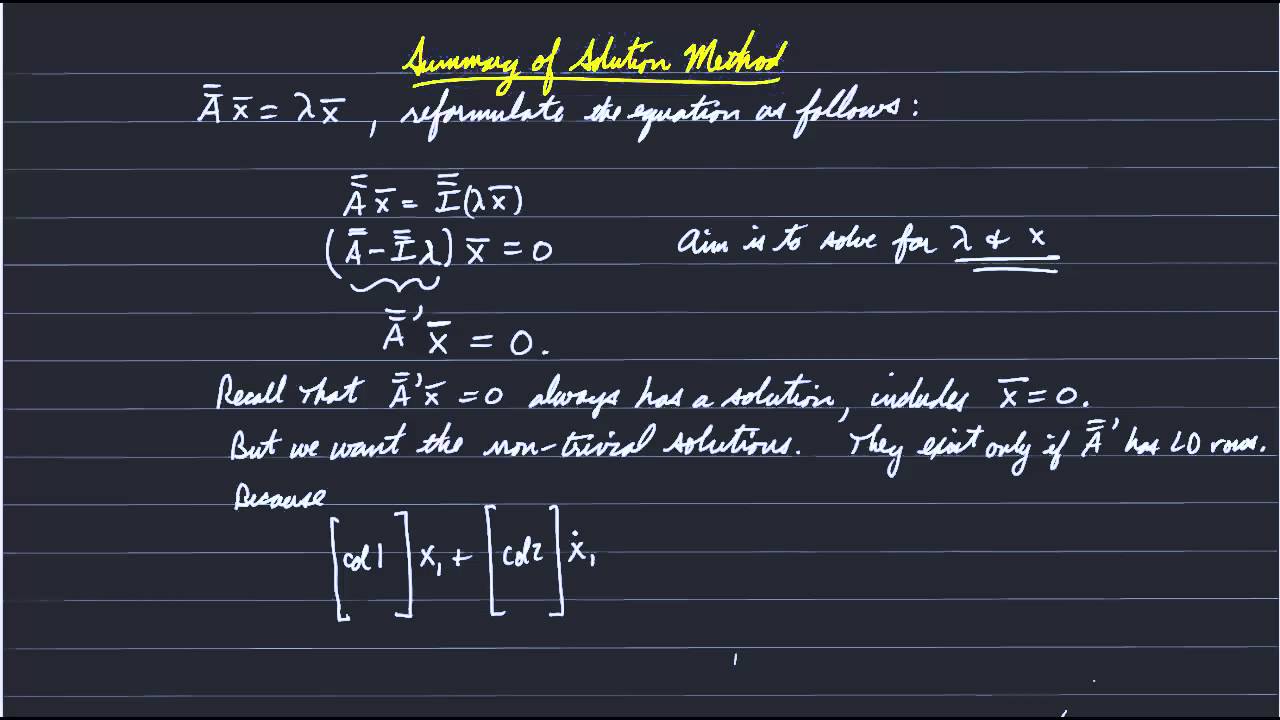 Summary of Solution Method
A̿ x̄ = λx̄ , reformulate the equation as follows:
A̿ x̄ = I̿(λx̄)
(A̿ - I̿λ) x̄ = 0 Aim is to solve for λ & x
A̿' x̄ = 0.
Recall that A̿'x̄ = 0 always has a solution, includes x̄ = 0.
But we want the non-trivial solutions. They exist only if A̿' has LD rows.
Because
[col1] x₁ + [col2] ẋ₁